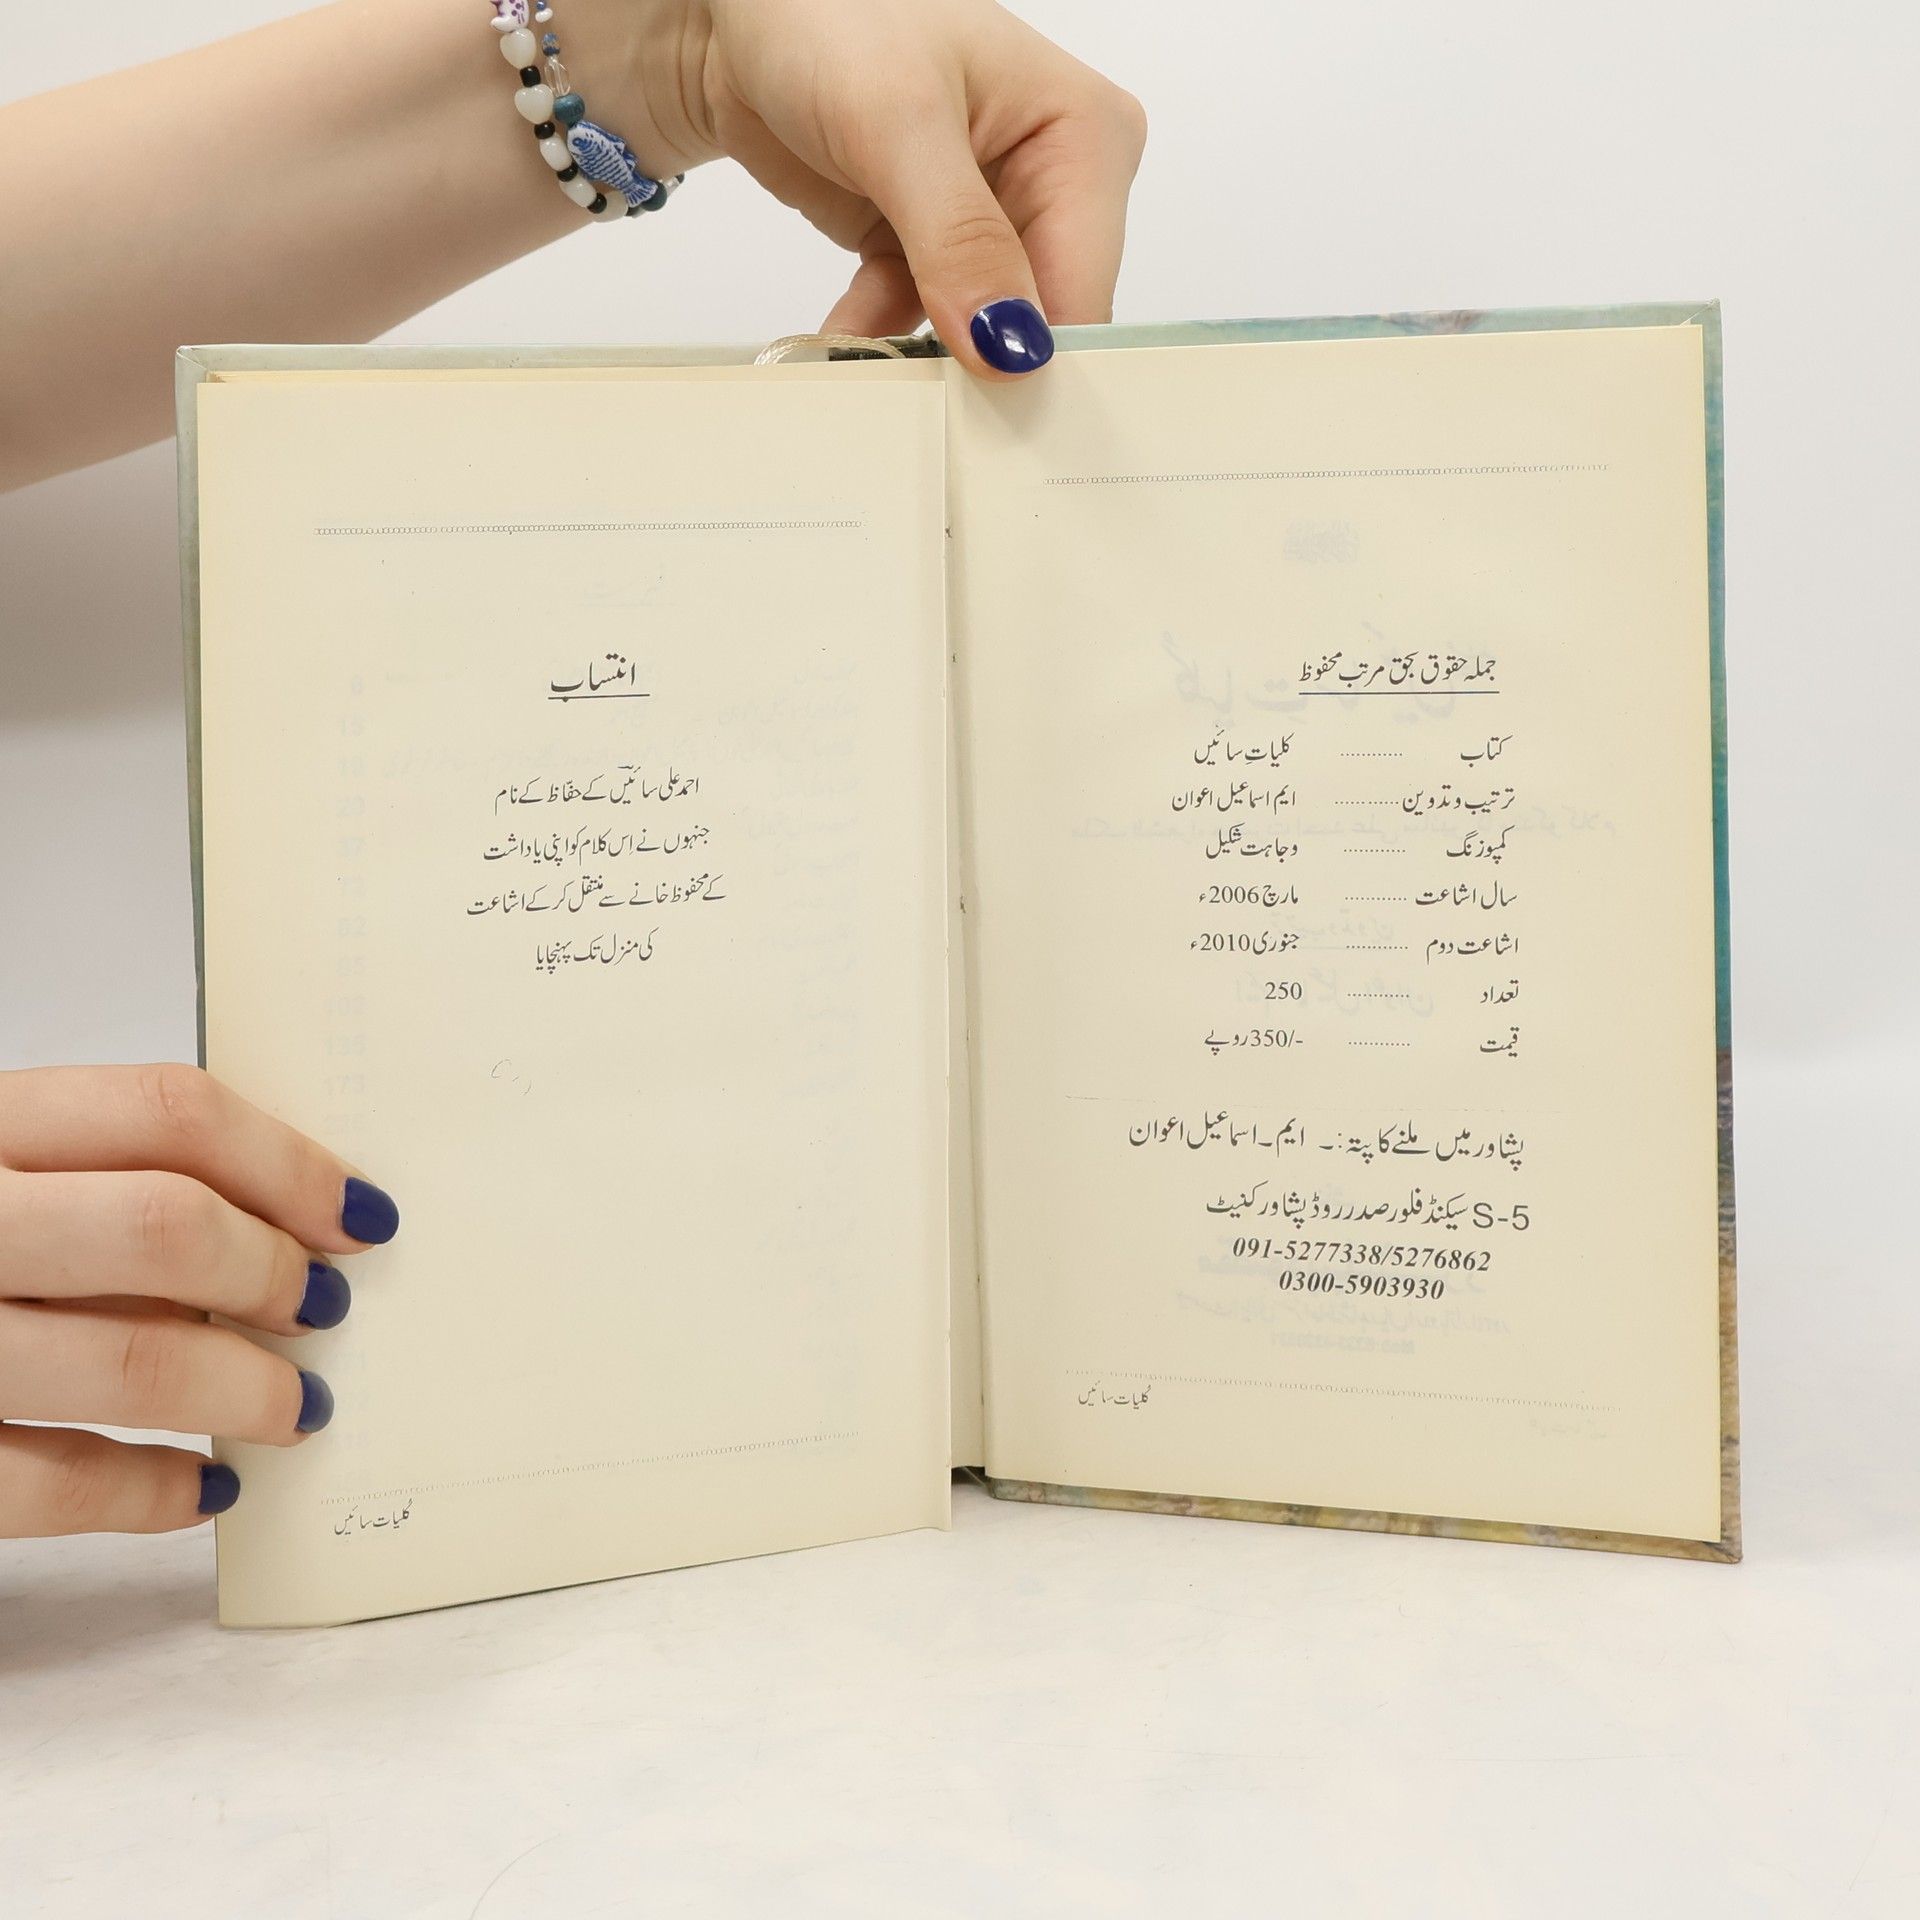 جملہ حقوق بحق مرتب محفوظ
کتاب ............ کلیاتِ سائیں
ترتیب و تدوین ............ ایم اسماعیل اعوان
کمپوزنگ ............ وجاہت شکیل
سال اشاعت ............ مارچ 2006ء
اشاعت دوم ............ جنوری 2010ء
تعداد ............ 250
قیمت ............ 350/- روپے
پشاور میں ملنے کا پتہ:۔ ایم۔اسماعیل اعوان
S-5 سیکنڈ فلور صدر روڈ پشاور کنیٹ
091-5277338/5276862
0300-5903930
کُلیات سائیں
انتساب
احمد علی سائیںؔ کے حفّاظ کے نام
جنہوں نے اِس کلام کو اپنی یاداشت
کے محفوظ خانے سے منتقل کر کے اشاعت
کی منزل تک پہنچایا
کُلیات سائیں